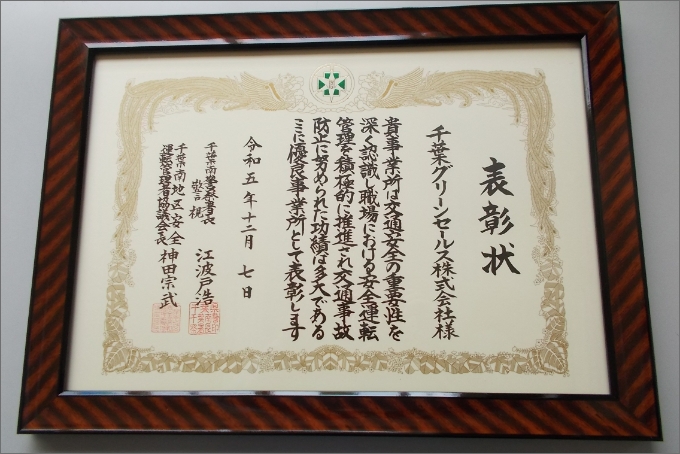 表彰状
千葉グリーンセールス株式会社様
貴事業所は交通安全の重要性を
深く認識し職場における安全運転
管理を積極的に推進され交通事故
防止に努められた功績は多大である
ここに優良事業所として表彰します
令和五年十二月七日
千葉南警察署長
警視 江波戸浩
千葉南地区安全
運転管理者協議会長 神田宗武